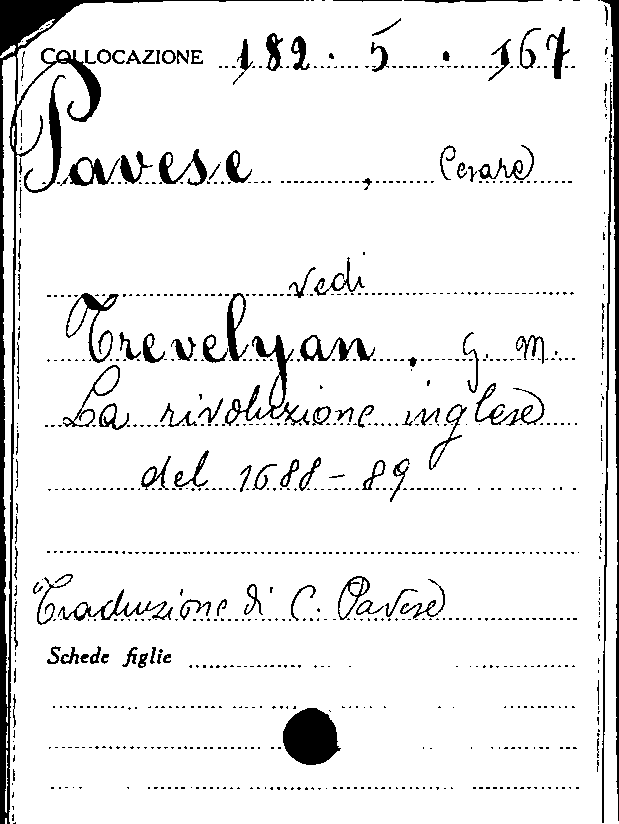 COLLOCAZIONE 182 . 5 . 167
Pavese , Cesare
vedi
Trevelyan . G. M.
La rivoluzione inglese
del 1688-89
Traduzione di C. Pavese
Schede figlie